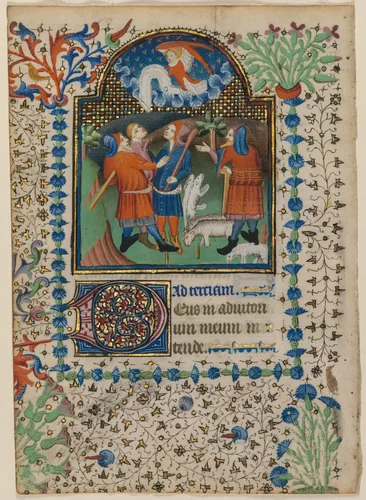 Ad terciam.
Deus in adiutori
um meum in
tende.